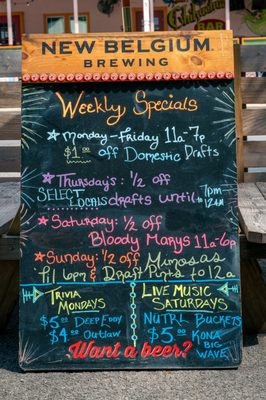 NEW BELGIUM®
BREWING
Weekly Specials
Monday-Friday 11a-7p
$1.00 off Domestic Drafts
Thursday's: 1/2 off
SELECT LOCALS drafts until 7pm-12AM
Saturday: 1/2 off
Bloody Marys 11a-6p
Sunday: 1/2 off Mimosas
til 6pm & Draft Pints to 12a
TRIVIA MONDAYS
$5.00 DEEP EDDY
$4.00 Outlaw
LIVE MUSIC SATURDAYS
NUTRL BUCKETS
$5.00 KONA BIG WAVE
Want a beer?
BAR